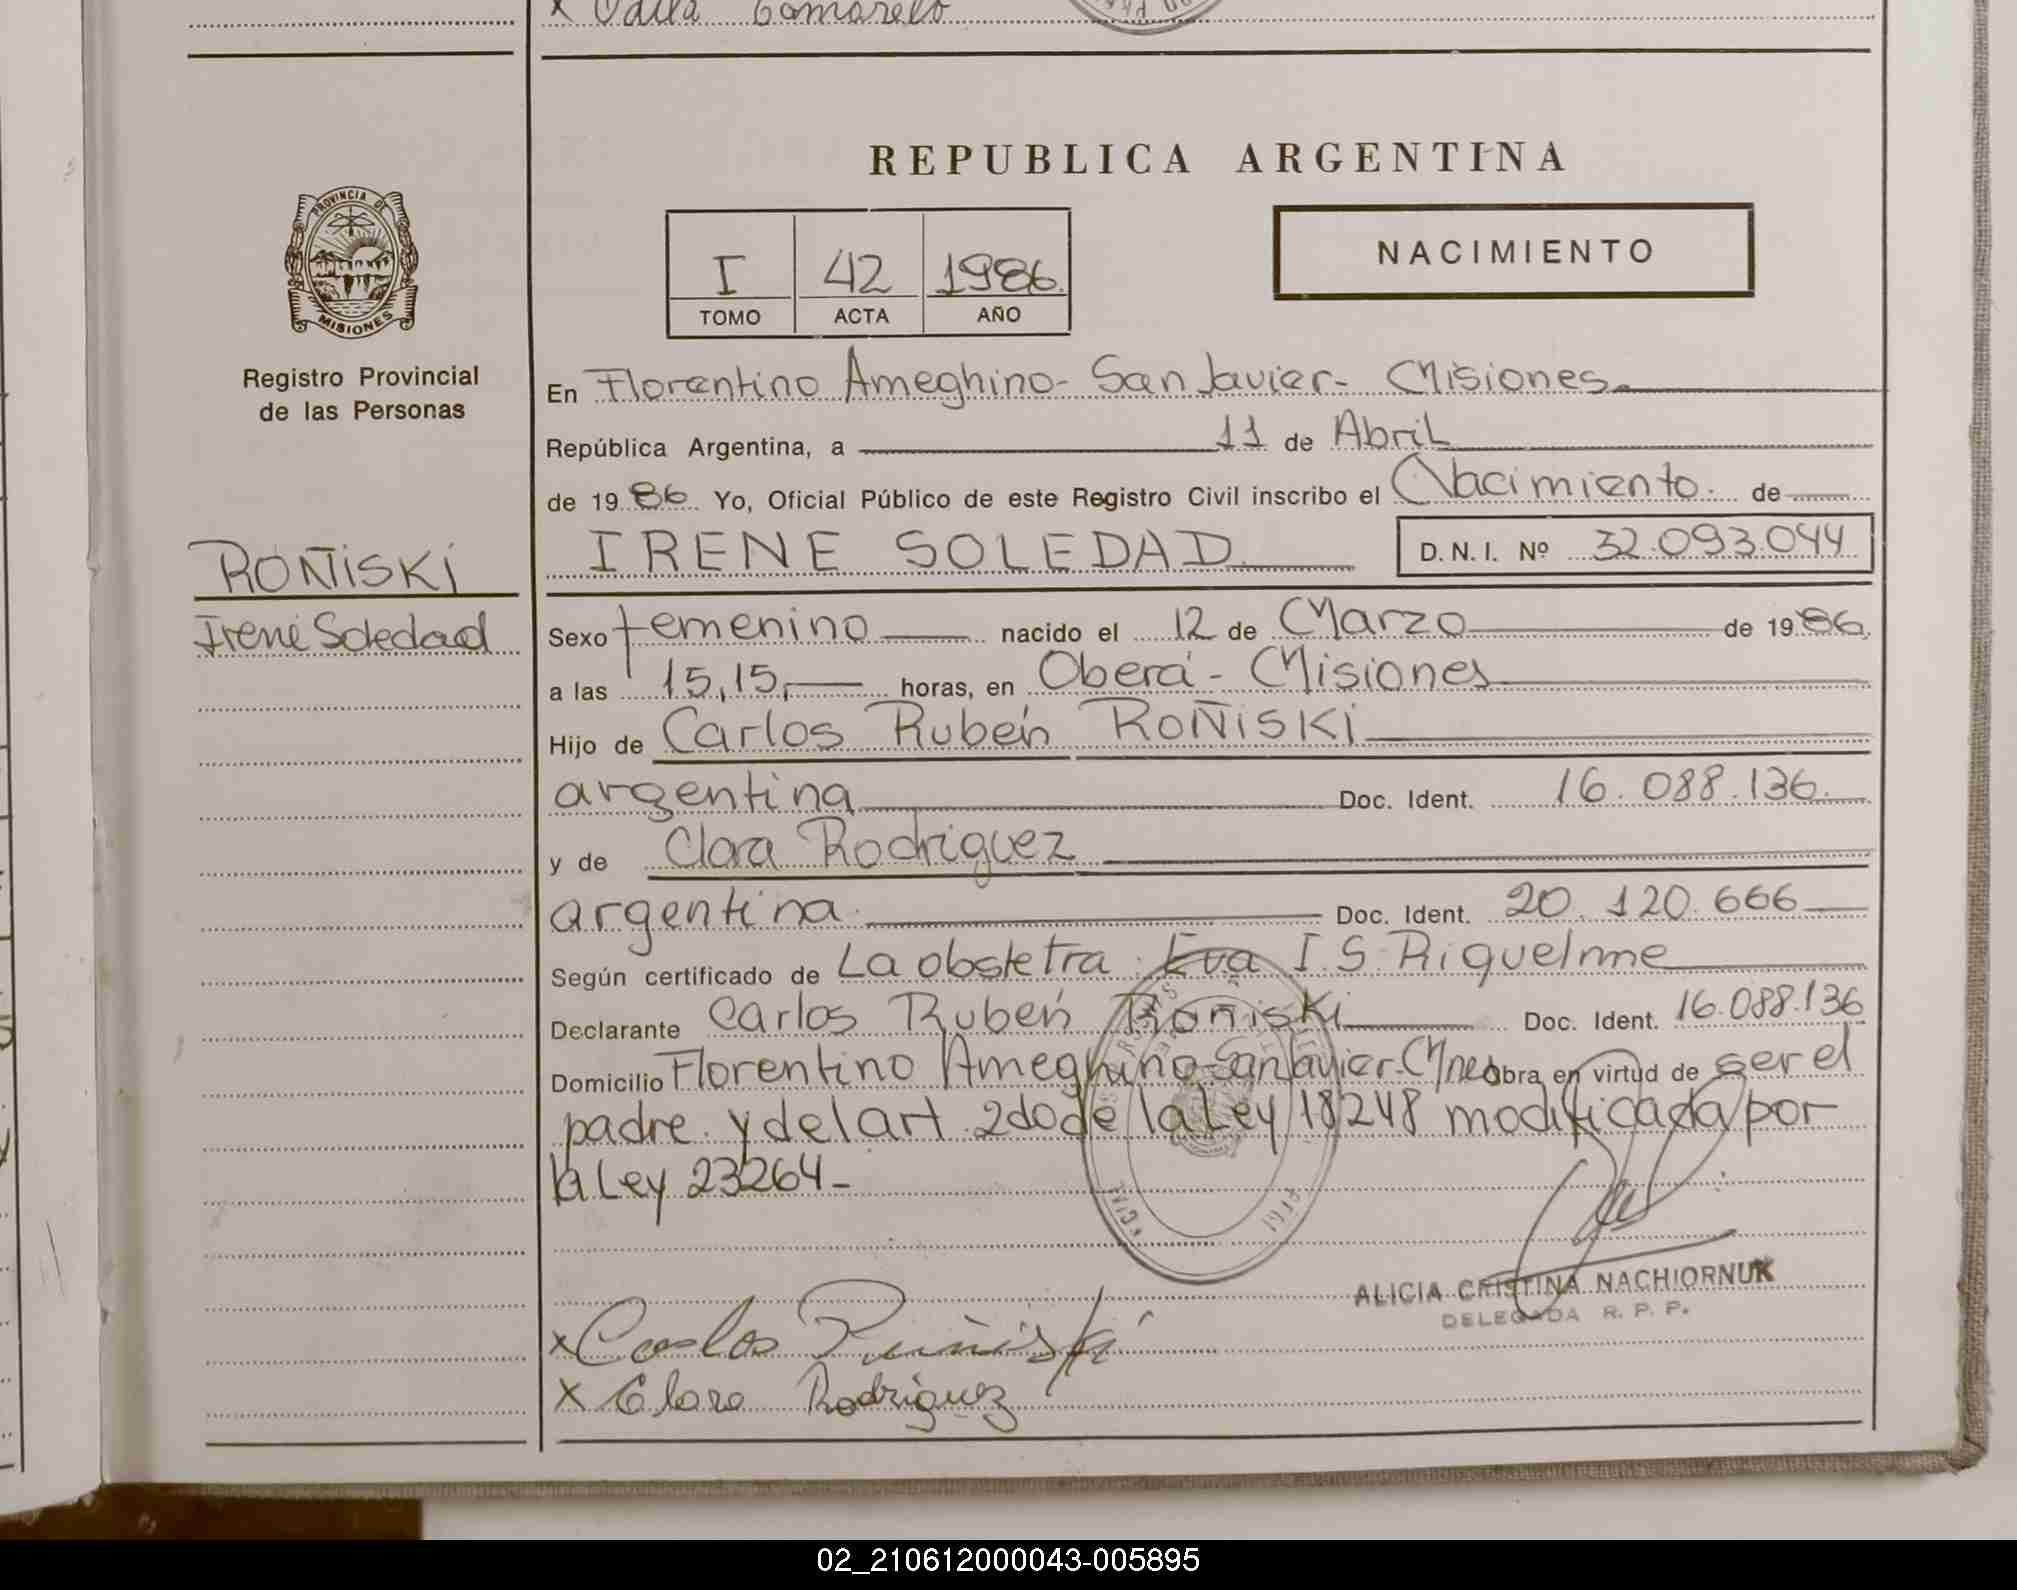 x Odila Camarelo
REPUBLICA ARGENTINA
PROVINCIA DE
MISIONES
Registro Provincial
de las Personas
I 42 1986.
TOMO ACTA AÑO
NACIMIENTO
En Florentino Ameghino- San Javier- Misiones
República Argentina, a 11 de Abril
de 1986 Yo, Oficial Público de este Registro Civil inscribo el Nacimiento. de
ROÑISKI
Irene Soledad
IRENE SOLEDAD D.N.I. Nº 32.093.044
Sexo femenino nacido el 12 de Marzo de 1986
a las 15,15, horas, en Oberá- Misiones
Hijo de Carlos Rubén ROÑISKI
argentina Doc. Ident. 16.088.136.
y de Clara Rodriguez
argentina. Doc. Ident. 20.120.666
Según certificado de La obstetra. Eva I.S. Riquelme
Declarante Carlos Rubén Roñiski Doc. Ident. 16.088.136
Domicilio Florentino Ameghino-San Javier-Mnes obra en virtud de ser el
padre. y del art. 2do de la Ley 18248 modificada por
la Ley 23264-
ALICIA CRISTINA NACHIORNUK
DELEGADA R. P. P.
x Carlos Ruñiski
x Clara Rodriguez
02_210612000043-005895